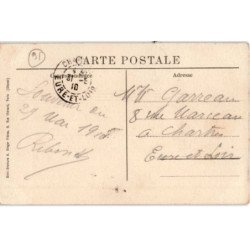 CARTE POSTALE
Correspondance
Adresse
EURE-ET-LOIR
Souvenir du
27 Mai 1910
Mr Garreau
8 rue Marceau
à Chartres
Eure et Loir